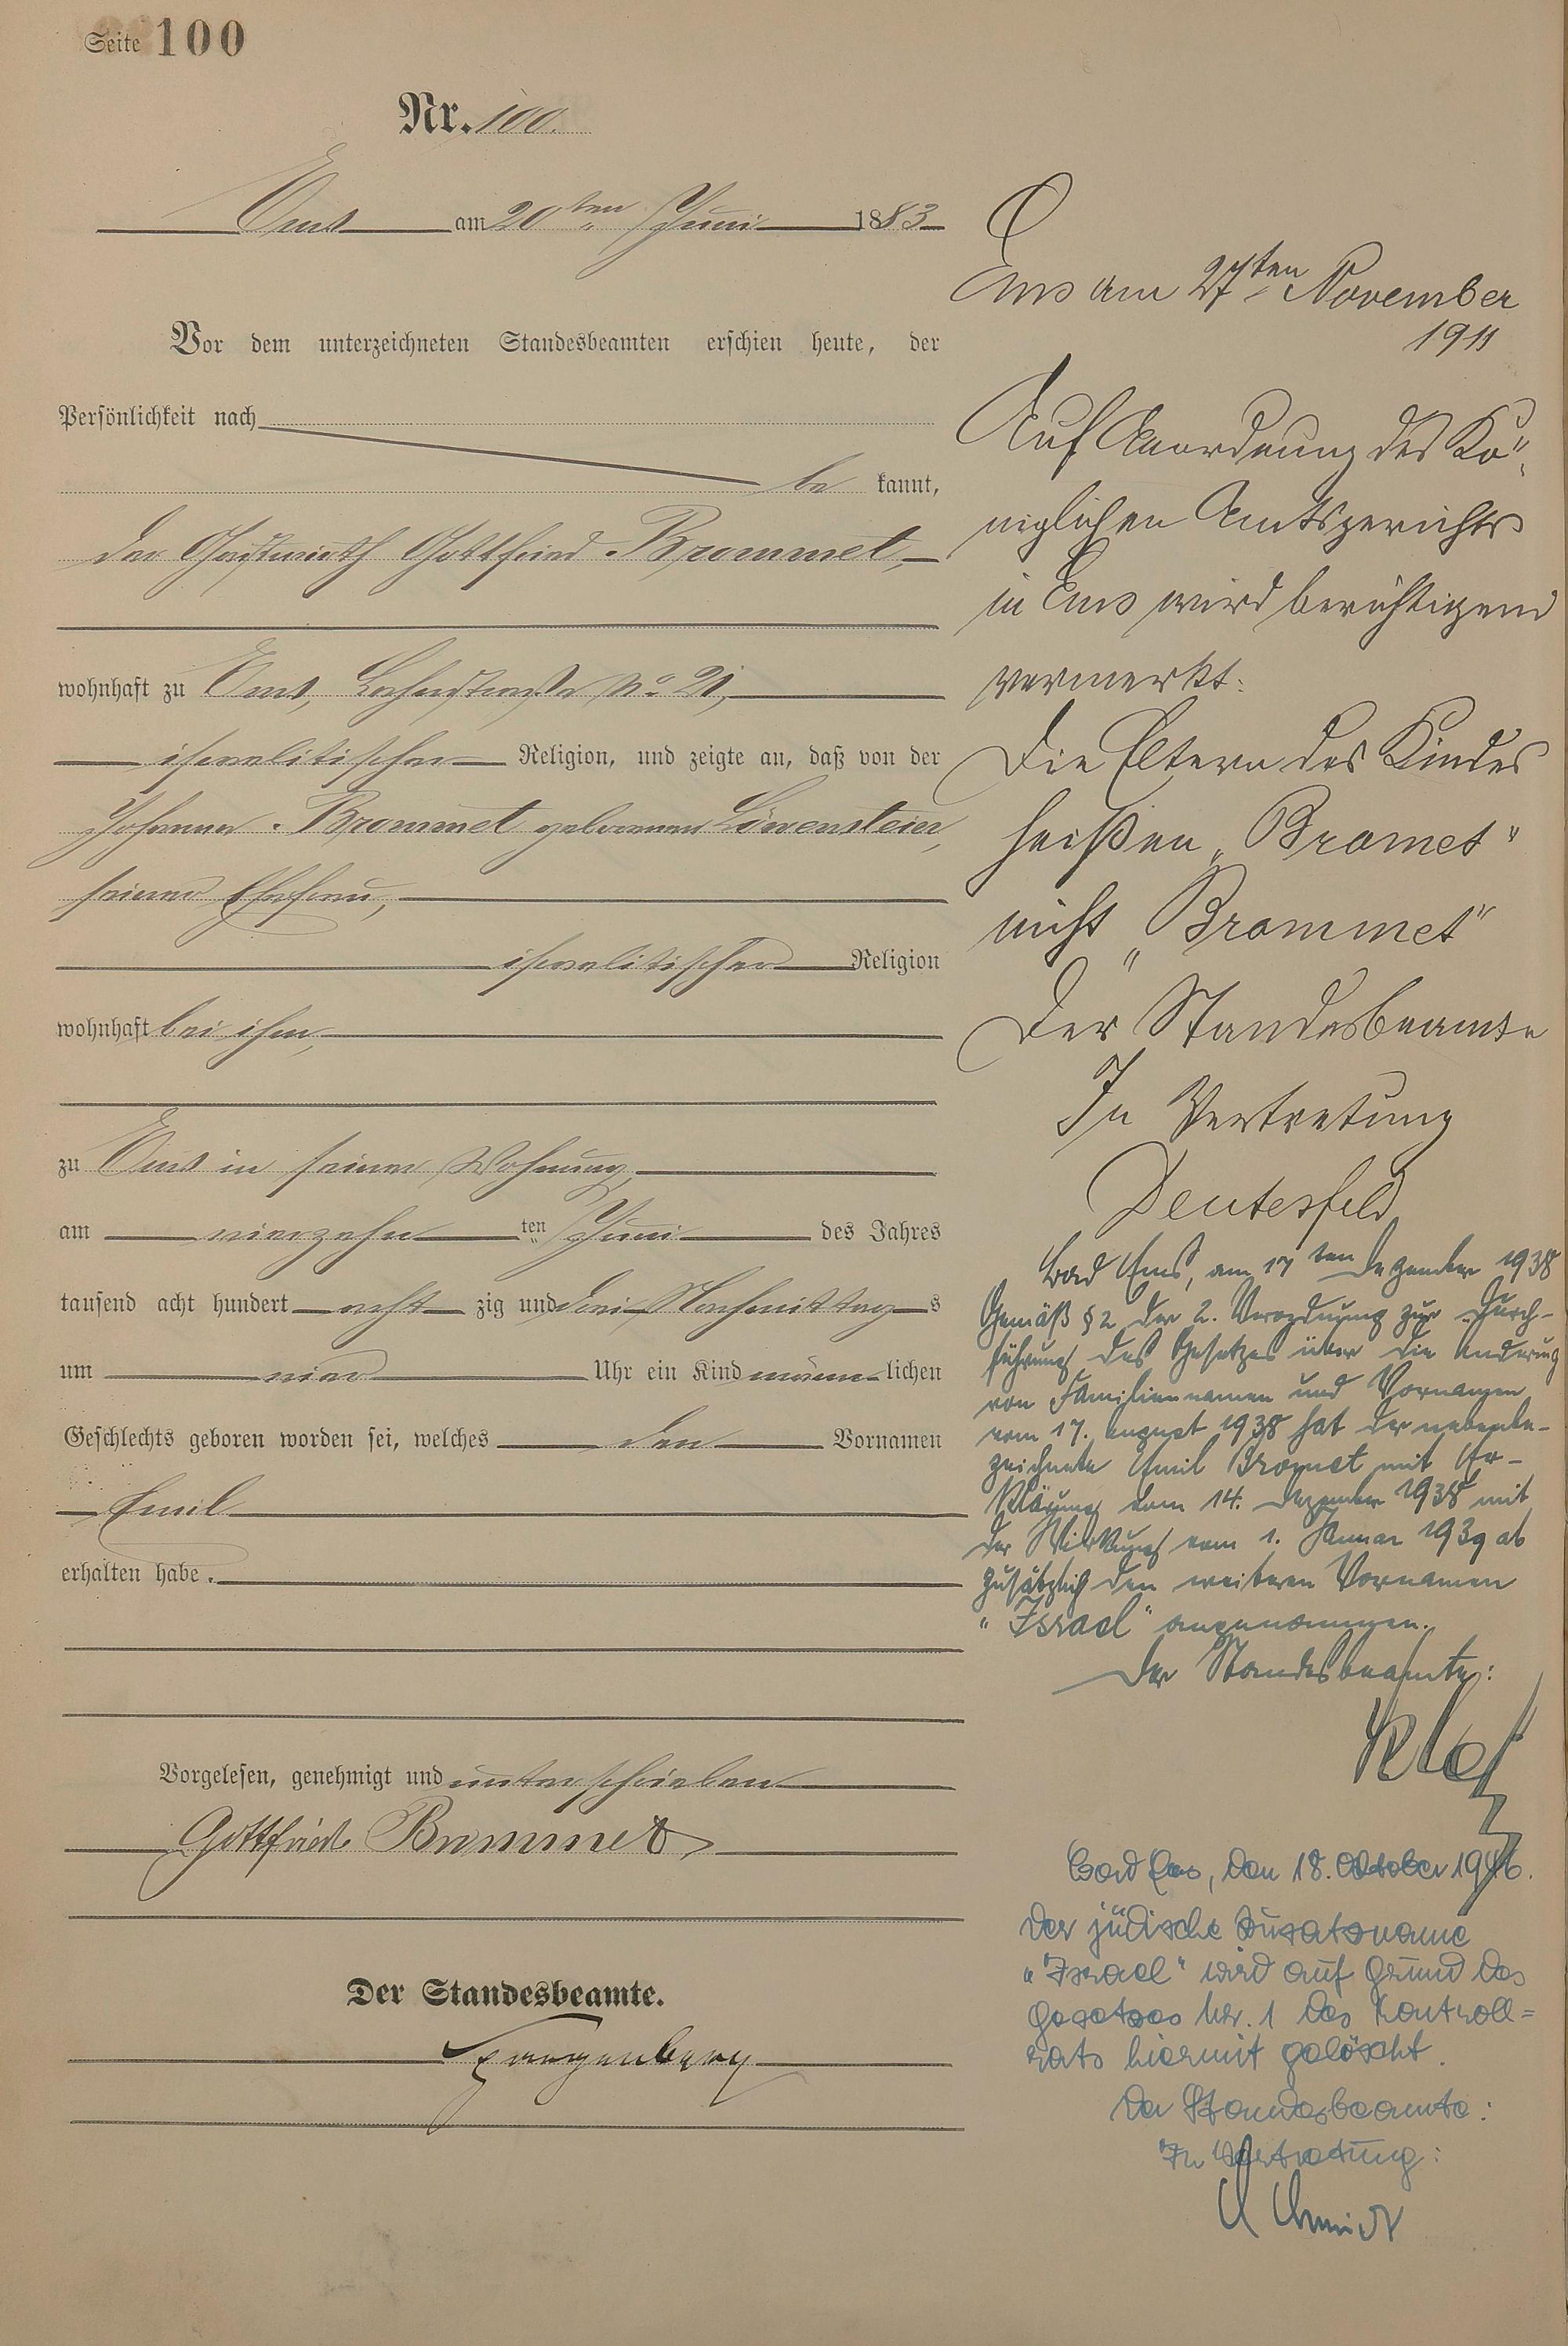 Seite 100
Nr. 100.
Ems am 20ten Juni 1883
Vor dem unterzeichneten Standesbeamten erschien heute, der
Persönlichkeit nach
be kannt,
der Gastwirth Gottfried Brommet,
wohnhaft zu Ems, No 21,
israelitischer Religion, und zeigte an, daß von der
Johanna Brommet geborenen Löwenstein,
seiner Ehefrau,
israelitischer Religion
wohnhaft bei ihm,
zu Ems in seiner Wohnung,
am vierzehn ten Juni des Jahres
tausend acht hundert acht zig und drei Nachmittag s
um vier Uhr ein Kind männ lichen
Geschlechts geboren worden sei, welches den Vornamen
Emil
erhalten habe.
Vorgelesen, genehmigt und unterschrieben
Gottfried Brommet
Der Standesbeamte.
Ems am 27ten November
1911
Auf Anordnung des Kö-
niglichen Amtsgerichts
in Ems wird berichtigend
vermerkt:
Die Eltern des Kindes
heißen „Bromet"
nicht „Brommet"
Der Standesbeamte
In Vertretung
Deutesfeld
Bad Ems, am 17ten Dezember 1938
Gemäß § 2 der 2. Verordnung zur Durch-
führung des Gesetzes über die Änderung
von Familiennamen und Vornamen
vom 17. August 1938 hat der nebenbe-
zeichnete Emil Bromet mit Er-
klärung vom 14. Dezember 1938 mit
der Wirkung vom 1. Januar 1939 ab
zusätzlich den weiteren Vornamen
"Israel" angenommen.
Der Standesbeamte:
Bad Ems, den 18. Oktober 1946.
Der jüdische Zusatzname
"Israel" wird auf Grund des
Gesetzes Nr. 1 des Kontroll=
rats hiermit gelöscht.
Der Standesbeamte:
In Vertretung:
Schmidt